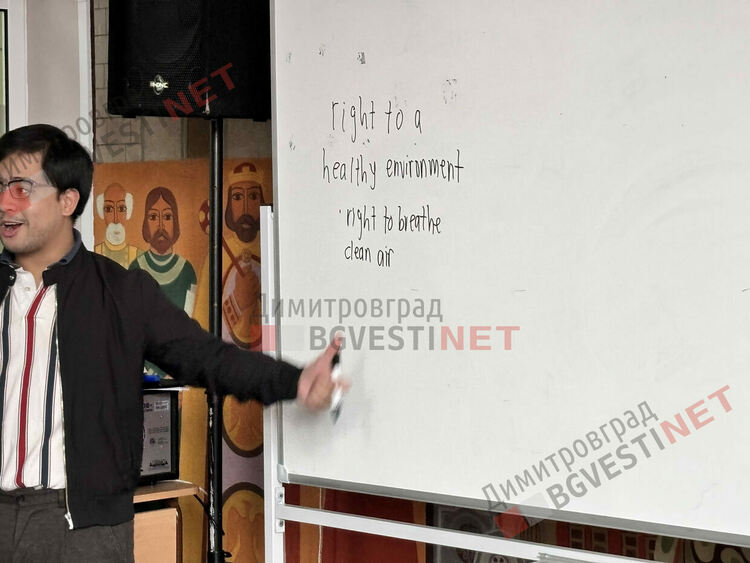 right to a
healthy environment
· right to breathe
clean air
Димитровград
BGVESTINET
Димитровград
BGVESTINET
Димитровград
BGVESTINET